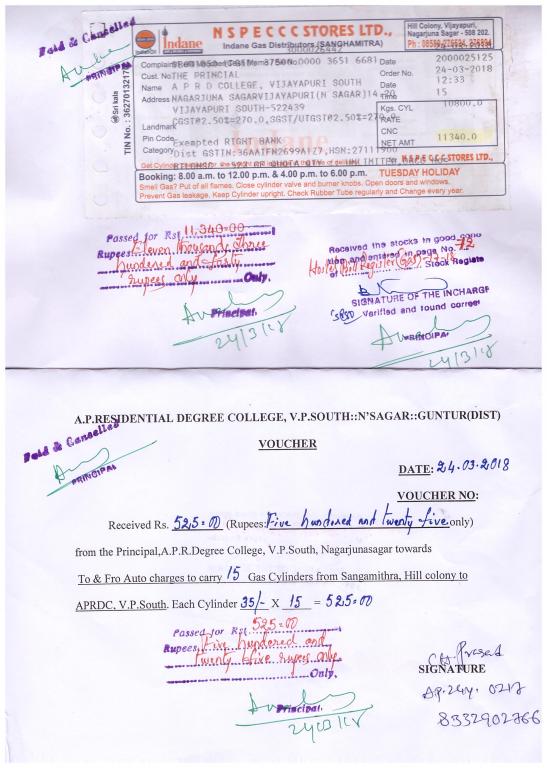 Paid & Cancelled
PRINCIPAL
Indane
N S P E C C C STORES LTD.,
Indane Gas Distributors (SANGHAMITRA)
Hill Colony, Vijayapuri,
Nagarjuna Sagar - 508 202.
Sri kala
TIN No.
Cust. No THE PRINCIAL
Name A P R D COLLEGE, VIJAYAPURI SOUTH
Address NAGARJUNA SAGARVIJAYAPURI(N SAGAR)
VIJAYAPURI SOUTH-522439
Landmark
Pin Code
Category
Exempted RIGHT BANK
Date 2000025125
Order No. 24-03-2018
Date 12:33
15
Kgs. CYL 10800.0
RATE
CNC
NET AMT 11340.0
N S P E C C C STORES LTD.,
Booking: 8.00 a.m. to 12.00 p.m. & 4.00 p.m. to 6.00 p.m. TUESDAY HOLIDAY
Smell Gas? Put of all flames. Close cylinder valve and burner knobs. Open doors and windows.
Prevent Gas leakage. Keep Cylinder upright. Check Rubber Tube regularly and Change every year.
Passed for Rs. 11,340=00
Rupees Eleven thousand three
hundred and forty
rupees only Only.
Principal.
24/3/18
Received the stocks in good condi
tion and entered in page No. 72
of Stock Registe
SIGNATURE OF THE INCHARGE
Verified and found correct
PRINCIPAL
24/3/18
A.P.RESIDENTIAL DEGREE COLLEGE, V.P.SOUTH::N'SAGAR::GUNTUR(DIST)
Paid & Cancelled
PRINCIPAL
VOUCHER
DATE: 24.03.2018
VOUCHER NO:
Received Rs. 525=00 (Rupees: Five hundored and twenty five only)
from the Principal,A.P.R.Degree College, V.P.South, Nagarjunasagar towards
To & Fro Auto charges to carry 15 Gas Cylinders from Sangamithra, Hill colony to
APRDC, V.P.South. Each Cylinder 35/- X 15 = 525=00
Passed for Rs. 525=00
Rupees Five hundred and
twenty five rupees only
Only.
Principal.
24/03/18
Ch. Prasad
SIGNATURE
8332902766